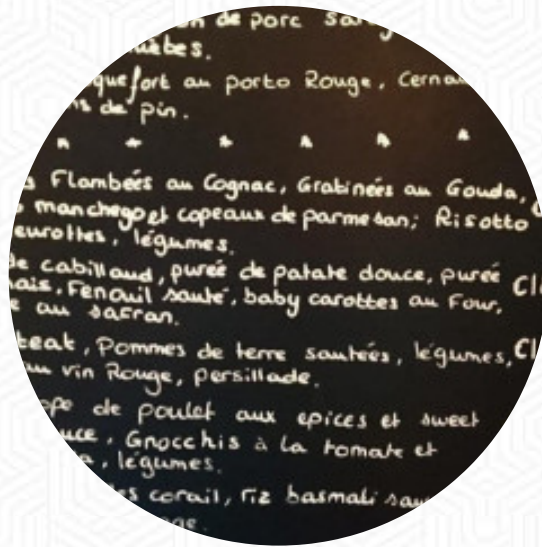 de porc
quefort au porto Rouge, Cerna
de pin.
Flambées au Cognac, Gratinées au Gouda,
manchego et copeaux de parmesan; Risotto
légumes.
cabillaud, pureé de patate douce, pureé
Fenouil sauté, baby carottes au Four,
au safran.
Pommes de terre sautées, légumes,
vin Rouge, Persillade.
de poulet aux epices et sweet
Gnocchis à la tomate et
légumes.
corail, riz basmati